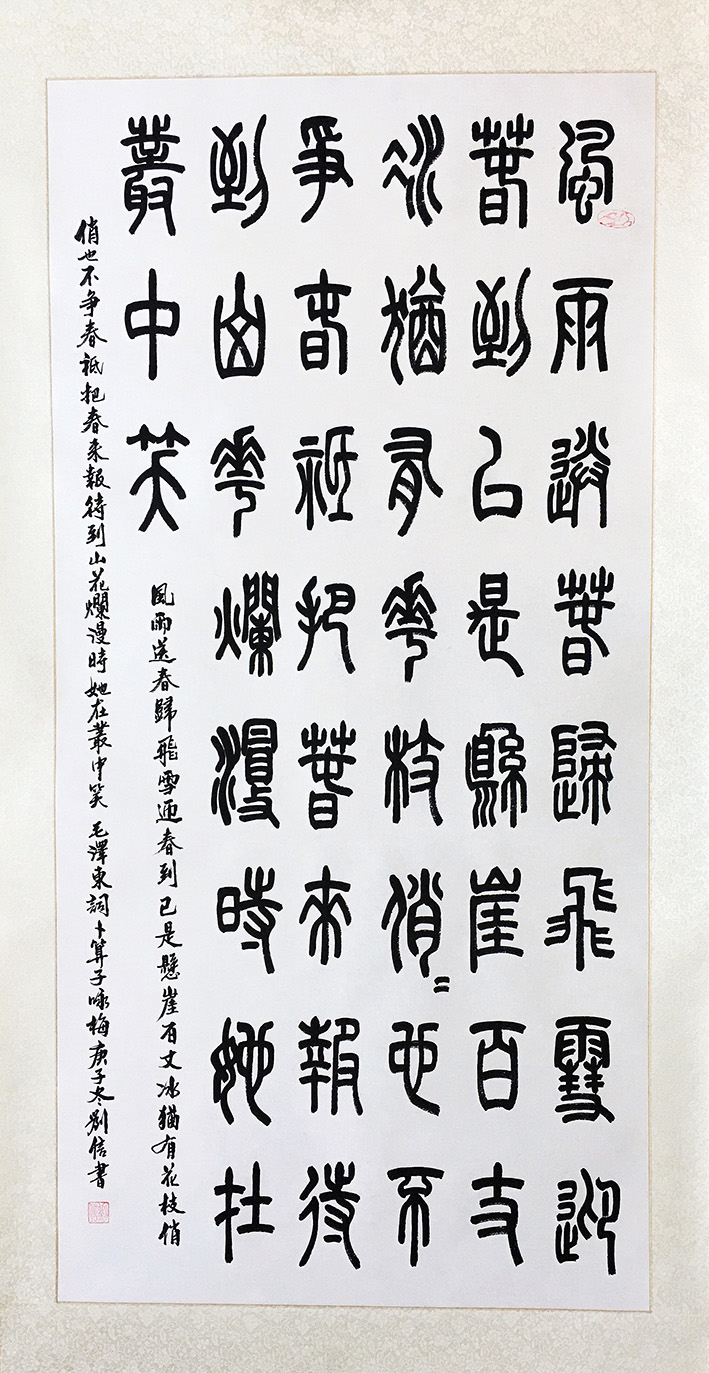 風雨送春歸飛雪迎
春到已是縣崖百丈
冰猶有花枝俏〻也不
爭春祗把春來報待
到山花爛漫時她在
叢中笑
風雨送春歸飛雪迎春到已是懸崖百丈冰猶有花枝俏
俏也不争春祗把春来報待到山花爛漫時她在叢中笑 毛澤東詞卜算子咏梅庚子冬劉信書